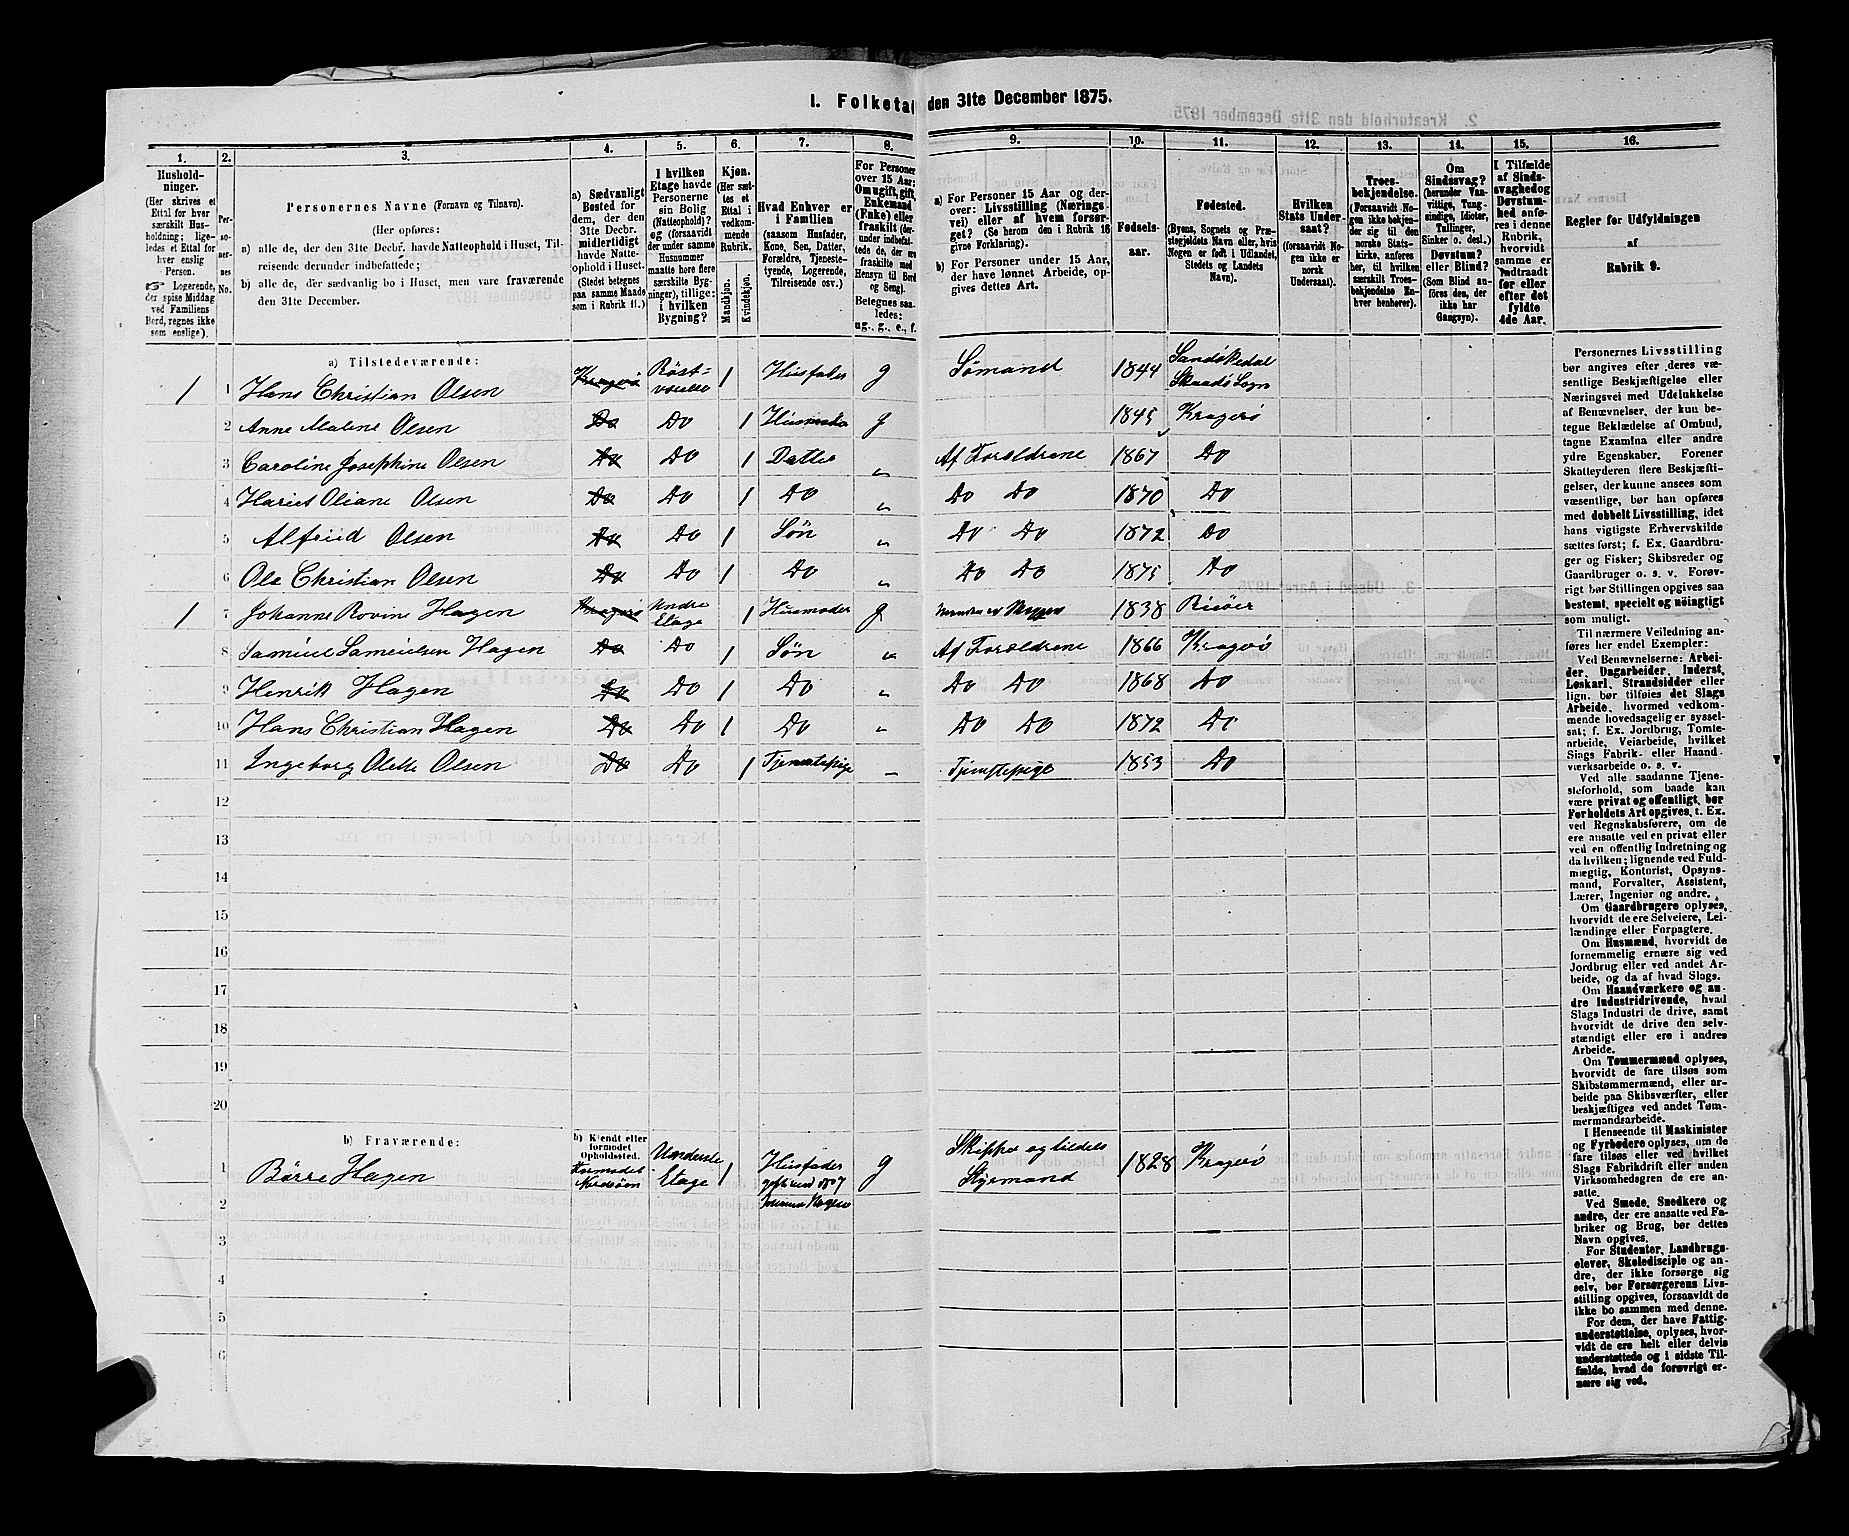 1. Folketa den 31te December 1875.
1. 2. 3. 4. 5. 6. 7. 8. 9. 10. 11. 12. 13. 14. 15. 16.
Hushold-
ninger.
(Her skrives et
Ettal for hver
særskilt Hus-
holdning; lige-
ledes et Ettal for
hver enslig
Person.
☞ Logerende,
der spise Middag
ved Familiens
Bord, regnes ikke
som enslige).
Per-
so-
ner-
nes
No.
Personernes Navne (Fornavn og Tilnavn).
(Her opføres:
a) alle de, der den 31te Decbr. havde Natteophold i Huset, Til-
reisende derunder indbefattede;
b) alle de, der sædvanlig bo i Huset, men vare fraværende
den 31te December.
a) Sædvanligt
Bosted for
dem, der den
31te Decbr.
midlertidigt
havde Natte-
ophold i Huset.
(Stedet betegnes
paa samme Maade
som i Rubrik 11.)
I hvilken
Etage havde
Personerne
sin Bolig
(Natteophold)?
og (forsaavidt
der under samme
Husnummer
maatte høre flere
særskilte Byg-
ninger), tillige:
i hvilken
Bygning?
Kjøn.
(Her sæt-
tes et
Ettal i
vedkom-
mende
Rubrik.
Mandkjøn.
Kvindekjøn.
Hvad Enhver er
i Familien
(saasom Husfader,
Kone, Søn, Datter,
Forældre, Tjeneste-
tyende, Logerende,
Tilreisende osv.)
For Personer
over 15 Aar:
Om ugift, gift,
Enkemand
(Enke) eller
fraskilt (der-
under indbefat-
tede de, der ere
fraskilte med
Hensyn til Bord
og Seng).
Betegnes saa-
ledes:
ug., g., e., f.
a) For Personer 15 Aar og der-
over: Livsstilling (Nærings-
vei) eller af hvem forsør-
get? (Se herom den i Rubrik 16
givne Forklaring).
b) For Personer under 15 Aar,
der have lønnet Arbeide, op-
gives dettes Art.
Fødsels-
aar.
Fødested.
(Byens, Sognets og Præ-
stegjeldets Navn eller, hvis
Nogen er født i Udlandet,
Stedets og Landets
Navn).
Hvilken
Stats Under-
saat?
(forsaavidt No-
gen ikke er
norsk
Undersaat).
Troes-
bekjendelse.
(Forsaavidt No-
gen ikke bekjen-
der sig til den
norske Stats-
kirke, anføres
her, til hvilken
særskilt Troes-
bekjendelse En-
hver henhører).
Om
Sindssvag?
(herunder Van-
vittige, Tung-
sindige, Idioter,
Tullinger,
Sinker o. desl.)
Døvstum?
eller Blind?
(Som Blind an-
føres den, der
ikke har
Gangsyn).
I Tilfælde
af Sinds-
svaghed og
Døvstum-
hed anfø-
res i denne
Rubrik,
hvorvidt
samme er
indtraadt
før eller
efter det
fyldte
4de Aar.
Regler for Udfyldningen
af
Rubrik 9.
a) Tilstedeværende:
1 1 Hans Christian Olsen Kragerø Röst- 1 Husfader g Sømand 1844 Sandøkedal
Skaadø Sogn
2 Anne Malene Olsen Do Do 1 g 1845 Kragerø
3 Caroline Josephine Olsen Do Do 1 Datter „ Af Foreldrene 1867 Do
4 Hariet Oliane Olsen Do Do 1 Do „ Do Do 1870 Do
5 Alfriid Olsen Do Do 1 Søn „ Do Do 1872 Do
6 Ole Christian Olsen Do Do 1 Do „ Do Do 1875 Do
1 7 Johanne Rovine Hagen Kragerø Andre
Etage 1 Husmoder g 1838 Risöer
8 Samuel Samuelsen Hagen Do Do 1 Søn „ Af Foreldrene 1866 Kragerø
9 Henrik Hagen Do Do 1 Do „ Do Do 1868 Do
10 Hans Christian Hagen Do Do 1 Do „ Do Do 1872 Do
11 Ingeborg Olette Olsen Do Do 1 Tjenestepige „ Tjenestepige 1853 Do
12
13
14
15
16
17
18
19
20
b) Fraværende:
b) Kjendt eller
formodet
Opholdssted.
1 Börre Hagen Formodet
Nordsøen Underste
Etage 1 Husfader g Skipper og tildels
Styrmand 1828 Kragerø
2
3
4
5
6
Personernes Livsstilling
bør angives efter deres væ-
sentlige Beskjæftigelse eller
Næringsvei med Udelukkelse
af Benævnelser, der kun be-
tegne Beklædelse af Ombud,
tagne Examina eller andre
ydre Egenskaber. Forener
Skatteyderen flere Beskjæfti-
gelser, der kunne ansees som
væsentlige, bør han opføres
med dobbelt Livsstilling, idet
hans vigtigste Erhvervskilde
sættes først; f. Ex. Gaardbru-
ger og Fisker; Skibsreder og
Gaardbruger o. s. v. Forøv-
rigt bør Stillingen opgives saa
bestemt, specielt og nöiagtigt
som muligt.
Til nærmere Veiledning an-
føres her endel Exempler:
Ved Benævnelserne: Arbei-
der, Dagarbeider, Inderst,
Løskarl, Strandsidder eller
lign. bør tilføies det Slags
Arbeide, hvormed vedkom-
mende hovedsagelig er syssel-
sat; f. Ex. Jordbrug, Tomte-
arbeide, Veiarbeide, hvilket
Slags Fabrik- eller Haand-
værksarbeide o. s. v.
Ved alle saadanne Tjene-
steforhold, som baade kan
være privat og offentligt, bør
Forholdets Art opgives, t. Ex.
ved Regnskabsførere, om de
ere ansatte ved en privat eller
ved en offentlig Indretning og
da hvilken; lignende ved Fuld-
mægtig, Kontorist, Opsyns-
mand, Forvalter, Assistent,
Lærer, Ingeniør og andre.
Om Gaardbrugere oplyses,
hvorvidt de ere Selveiere, Lei-
lændinge eller Forpagtere.
Om Husmænd, hvorvidt de
fornemmelig ernære sig ved
Jordbrug eller ved andet Ar-
beide, og da af hvad Slags.
Om Haandværkere og an-
dre Industridrivende, hvad
Slags Industri de drive, samt
hvorvidt de drive den selv-
stændigt eller ere i andres
Arbeide.
Om Tømmermænd oplyses,
hvorvidt de fare tilsøs som
Skibstømmermænd, eller ar-
beide paa Skibsværfter, eller
beskjæftiges ved andet Tøm-
mermandsarbeide.
I Henseende til Maskinister
og Fyrbødere oplyses, om de
fare tilsøs eller ved hvilket
Slags Fabrikdrift eller anden
Virksomhedsgren de ere an-
satte.
Ved Smede, Snedkere og
andre, der ere ansatte ved Fa-
briker og Brug, bør dettes
Navn opgives.
For Studenter, Landbrugs-
elever, Skoledisciple og an-
dre, der ikke forsørge sig
selv, bør Forsørgerens Livs-
stilling opgives, forsaavidt de
ikke bo sammen med denne.
For dem, der have Fattig-
understøttelse, oplyses, hvor-
vidt de ere helt eller delvis
understøttede og i sidste Til-
fælde, hvad de forøvrigt er-
nære sig ved.